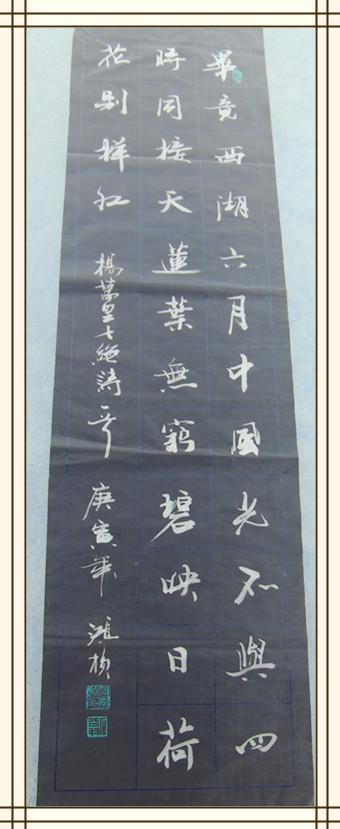 畢竟西湖六月中風光不與四
時同接天蓮葉無窮碧映日荷
花别样红 楊萬里七絶詩一首 庚寅年